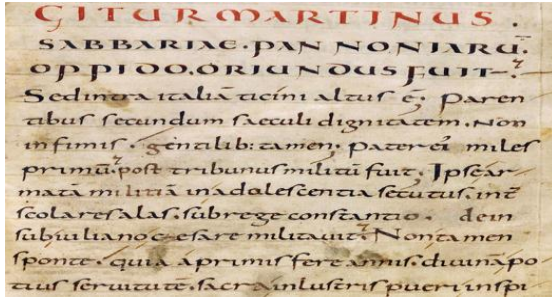 GITUR MARTINUS .
SABBARIAE · PANNONIARŪ .
OPPIDO . ORIUNDUS FUIT
Sed intra italiā ticini altus ē ; Paren
tibus secundum saeculi dignitatem . Non
infimis . gentilib: tamen ; Pater ei miles
primū ; post tribunus militū fuit ; Ipse ar
matā militiā in adolescentia secutus . int̄
scolares alas . sub rege constantio . dein
sub iuliano cęsare militauit ; Non tamen
sponte . quia a primis fere annis . diuinā po
tius seruitutē . sacra inlustris pueri inspi